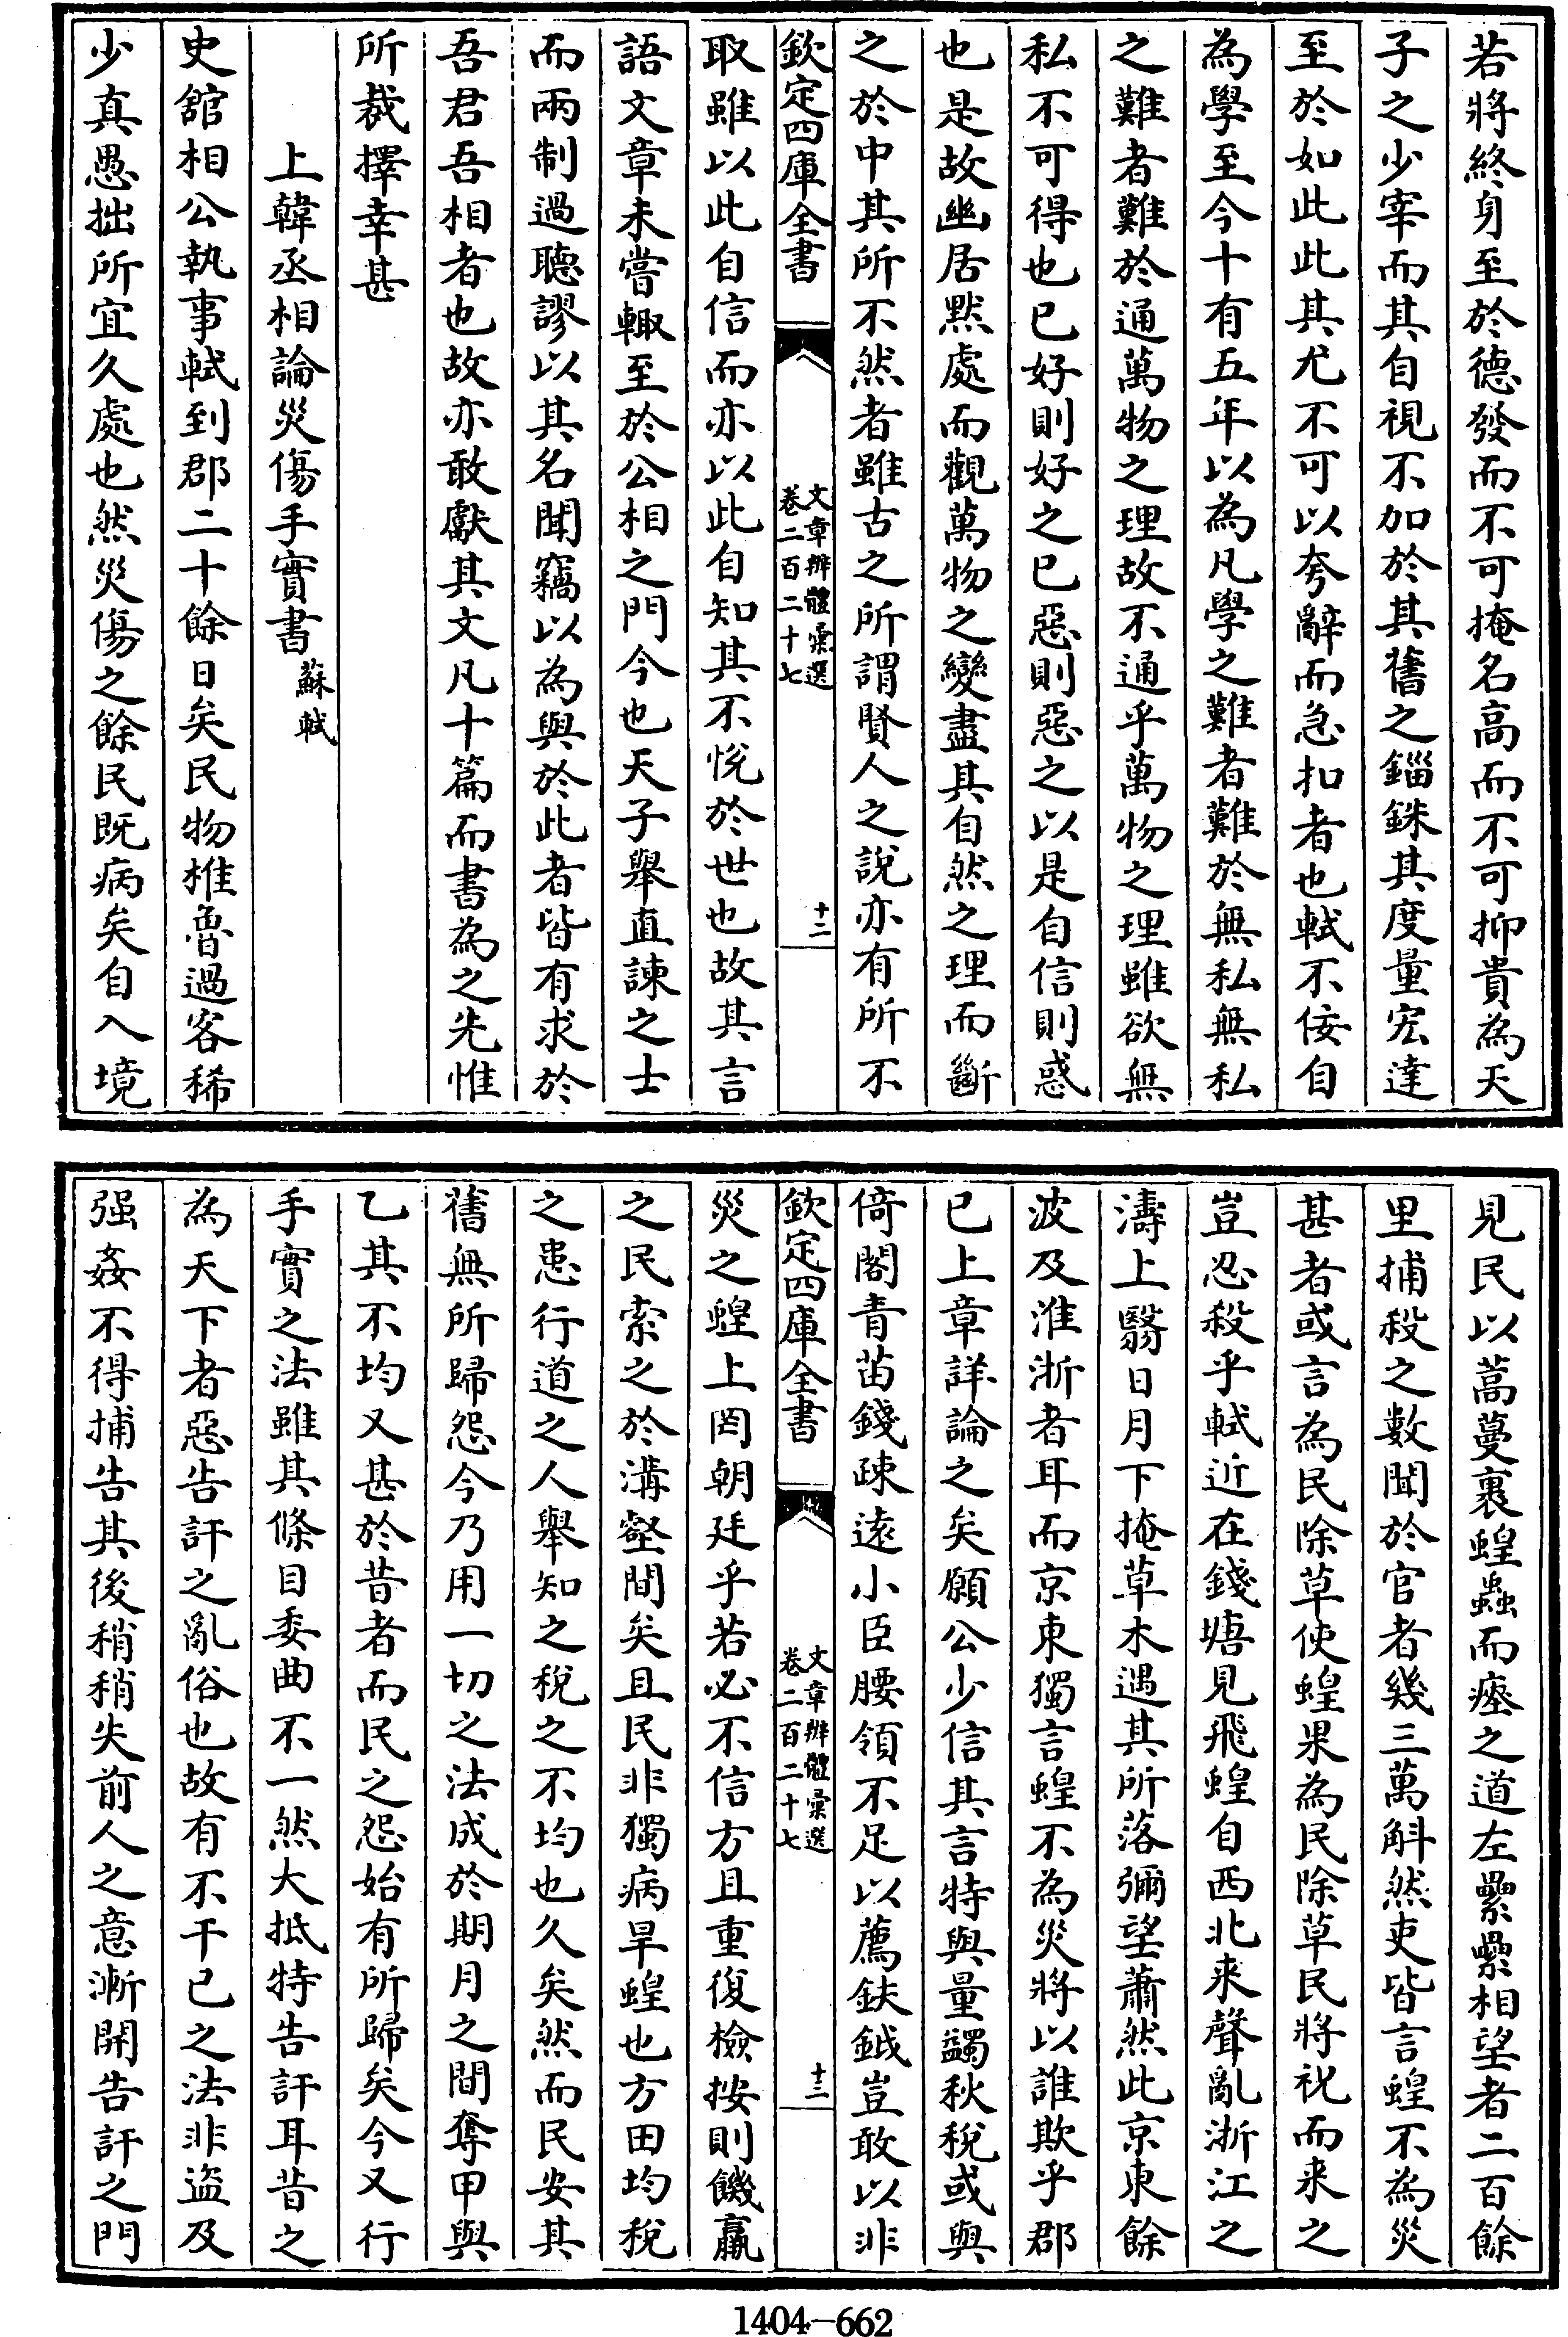 若將終身至於德發而不可掩名高而不可抑貴為天
子之少宰而其自視不加於其舊之錙銖其度量宏達
至於如此此其尤不可以夸辭而急扣者也軾不佞自
為學至今十有五年以為凡學之難者難於無私無私
之難者難於通萬物之理故不通乎萬物之理雖欲無
私不可得也已好則好之已惡則惡之以是自信則惑
也是故幽居黙處而觀萬物之變盡其自然之理而斷
之於中其所不然者雖古之所謂賢人之說亦有所不
欽定四庫全書
文章辨體彚選
卷二百二十七
十二
取雖以此自信而亦以此自知其不悅於世也故其言
語文章未嘗輙至於公相之門今也天子舉直諫之士
而兩制過聽謬以其名聞竊以為與於此者皆有求於
吾君吾相者也故亦敢獻其文凡十篇而書為之先惟
所裁擇幸甚
上韓丞相論災傷手實書 蘇軾
史舘相公執事軾到郡二十餘日矣民物椎魯過客稀
少真愚拙所宜久處也然災傷之餘民既病矣自入境
見民以蒿蔓裹蝗蟲而瘞之道左纍纍相望者二百餘
里捕殺之數聞於官者幾三萬斛然吏皆言蝗不為災
甚者或言為民除草使蝗果為民除草民將祝而来之
豈忍殺乎軾近在錢塘見飛蝗自西北来聲亂浙江之
濤上翳日月下掩草木遇其所落彌望蕭然此京東餘
波及淮浙者耳而京東獨言蝗不為災將以誰欺乎郡
已上章詳論之矣願公少信其言特與量蠲秋稅或與
倚閣青苗錢疎遠小臣腰領不足以薦鈇鉞豈敢以非
欽定四庫全書
文章辨體彚選
卷二百二十七
十三
災之蝗上罔朝廷乎若必不信方且重復檢按則饑羸
之民索之於溝壑間矣且民非獨病旱蝗也方田均稅
之患行道之人舉知之稅之不均也久矣然而民安其
舊無所歸怨今乃用一切之法成於期月之間奪甲與
乙其不均又甚於昔者而民之怨始有所歸矣今又行
手實之法雖其條目委曲不一然大抵特告訐耳昔之
為天下者惡告訐之亂俗也故有不干已之法非盗及
强姦不得捕告其後稍稍失前人之意漸開告訐之門
1404—662